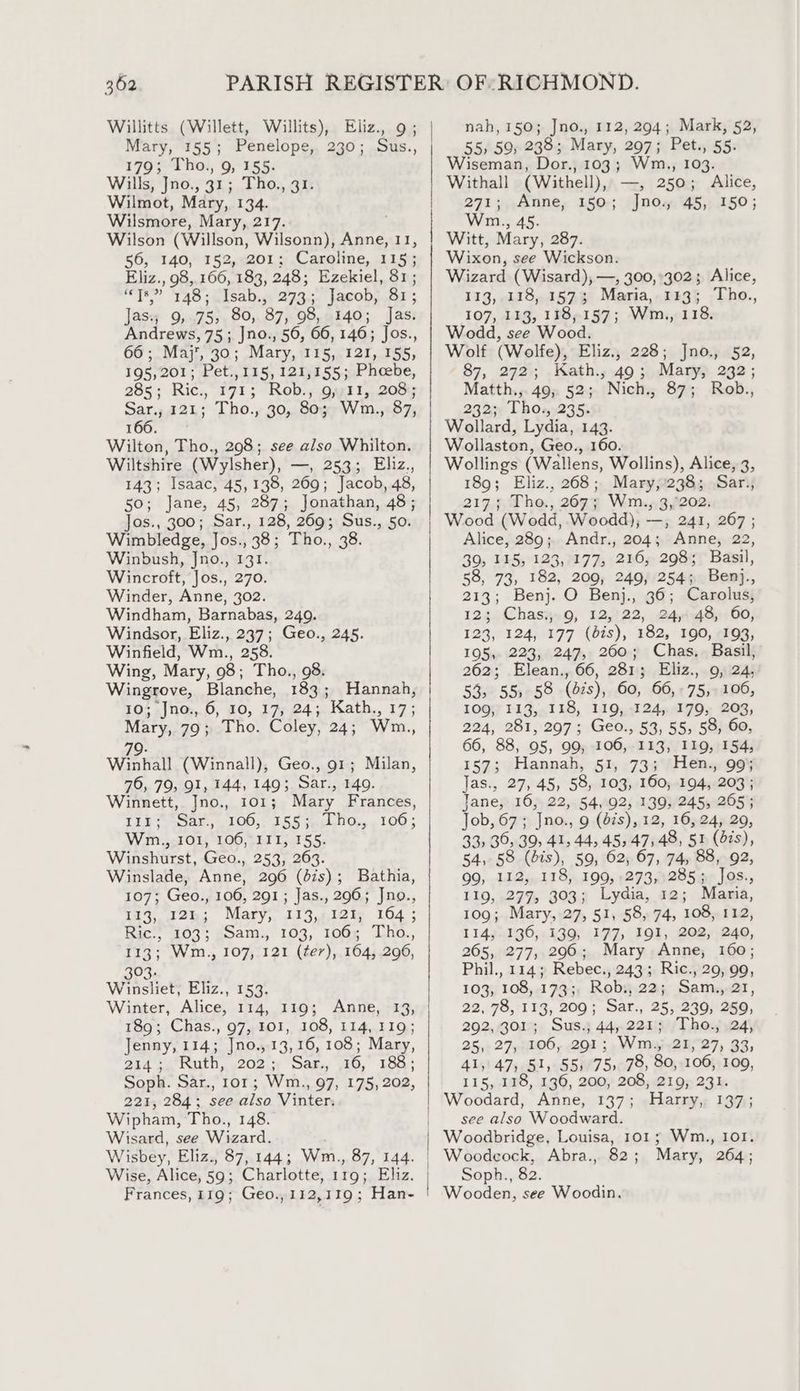 362 PARISH REGISTER OF RICHMOND.
Willitts (Willett, Willits), Eliz., 9;
Mary, 155; Penelope, 230; Sus.,
179; Tho., 9, 155.
Wills, Jno., 31; Tho., 31.
Wilmot, Mary, 134.
Wilsmore, Mary, 217.
Wilson (Willson, Wilsonn), Anne, 11,
56, 140, 152, 201; Caroline, 115;
Eliz., 98, 166, 183, 248; Ezekiel, 81;
“Iˢ,” 148; Isab., 273; Jacob, 81;
Jas., 9, 75, 80, 87, 98, 140; Jas.
Andrews, 75; Jno., 56, 66, 146; Jos.,
66; Majʳ, 30; Mary, 115, 121, 155,
195, 201; Pet., 115, 121, 155; Phœbe,
285; Ric., 171; Rob., 9, 11, 208;
Sar., 121; Tho., 30, 80; Wm., 87,
166.
Wilton, Tho., 298; see also Whilton.
Wiltshire (Wylsher), —, 253; Eliz.,
143; Isaac, 45, 138, 269; Jacob, 48,
50; Jane, 45, 287; Jonathan, 48;
Jos., 300; Sar., 128, 269; Sus., 50.
Wimbledge, Jos., 38; Tho., 38.
Winbush, Jno., 131.
Wincroft, Jos., 270.
Winder, Anne, 302.
Windham, Barnabas, 249.
Windsor, Eliz., 237; Geo., 245.
Winfield, Wm., 258.
Wing, Mary, 98; Tho., 98.
Wingrove, Blanche, 183; Hannah,
10; Jno., 6, 10, 17, 24; Kath., 17;
Mary, 79; Tho. Coley, 24; Wm.,
79.
Winhall (Winnall), Geo., 91; Milan,
76, 79, 91, 144, 149; Sar., 149.
Winnett, Jno., 101; Mary Frances,
111; Sar., 106, 155; Tho., 106;
Wm., 101, 106, 111, 155.
Winshurst, Geo., 253, 263.
Winslade, Anne, 296 (bis); Bathia,
107; Geo., 106, 291; Jas., 296; Jno.,
113, 121; Mary, 113, 121, 164;
Ric., 103; Sam., 103, 106; Tho.,
113; Wm., 107, 121 (ter), 164, 296,
303.
Winsliet, Eliz., 153.
Winter, Alice, 114, 119; Anne, 13,
189; Chas., 97, 101, 108, 114, 119;
Jenny, 114; Jno., 13, 16, 108; Mary,
214; Ruth, 202; Sar., 16, 188;
Soph. Sar., 101; Wm., 97, 175, 202,
221, 284; see also Vinter.
Wipham, Tho., 148.
Wisard, see Wizard.
Wisbey, Eliz., 87, 144; Wm., 87, 144.
Wise, Alice, 59; Charlotte, 119; Eliz.
Frances, 119; Geo., 112, 119; Han-
nah, 150; Jno., 112, 294; Mark, 52,
55, 59, 238; Mary, 297; Pet., 55.
Wiseman, Dor., 103; Wm., 103.
Withall (Withell), —, 250; Alice,
271; Anne, 150; Jno., 45, 150;
Wm., 45.
Witt, Mary, 287.
Wixon, see Wickson.
Wizard (Wisard), —, 300, 302; Alice,
113, 118, 157; Maria, 113; Tho.,
107, 113, 118, 157; Wm., 118.
Wodd, see Wood.
Wolf (Wolfe), Eliz., 228; Jno., 52,
87, 272; Kath., 49; Mary, 232;
Matth., 49, 52; Nich., 87; Rob.,
232; Tho., 235.
Wollard, Lydia, 143.
Wollaston, Geo., 160.
Wollings (Wallens, Wollins), Alice, 3,
189; Eliz., 268; Mary, 238; Sar.,
217; Tho., 267; Wm., 3, 202.
Wood (Wodd, Woodd), —, 241, 267;
Alice, 289; Andr., 204; Anne, 22,
39, 115, 123, 177, 216, 298; Basil,
58, 73, 182, 209, 249, 254; Benj.,
213; Benj. O Benj., 36; Carolus,
12; Chas., 9, 12, 22, 24, 48, 60,
123, 124, 177 (bis), 182, 190, 193,
195, 223, 247, 260; Chas. Basil,
262; Elean., 66, 281; Eliz., 9, 24,
53, 55, 58 (bis), 60, 66, 75, 106,
109, 113, 118, 119, 124, 179, 203,
224, 281, 297; Geo., 53, 55, 58, 60,
66, 88, 95, 99, 106, 113, 119, 154,
157; Hannah, 51, 73; Hen., 99;
Jas., 27, 45, 58, 103, 160, 194, 203;
Jane, 16, 22, 54, 92, 139, 245, 265;
Job, 67; Jno., 9 (bis), 12, 16, 24, 29,
33, 36, 39, 41, 44, 45, 47, 48, 51 (bis),
54, 58 (bis), 59, 62, 67, 74, 88, 92,
99, 112, 118, 199, 273, 285; Jos.,
119, 277, 303; Lydia, 12; Maria,
109; Mary, 27, 51, 58, 74, 108, 112,
114, 136, 139, 177, 191, 202, 240,
265, 277, 296; Mary Anne, 160;
Phil., 114; Rebec., 243; Ric., 29, 99,
103, 108, 173; Rob., 22; Sam., 21,
22, 78, 113, 209; Sar., 25, 239, 259,
292, 301; Sus., 44, 221; Tho., 24,
25, 27, 106, 291; Wm., 21, 27, 33,
41, 47, 51, 55, 75, 78, 80, 106, 109,
115, 118, 136, 200, 208, 219, 231.
Woodard, Anne, 137; Harry, 137;
see also Woodward.
Woodbridge, Louisa, 101; Wm., 101.
Woodcock, Abra., 82; Mary, 264;
Soph., 82.
Wooden, see Woodin.